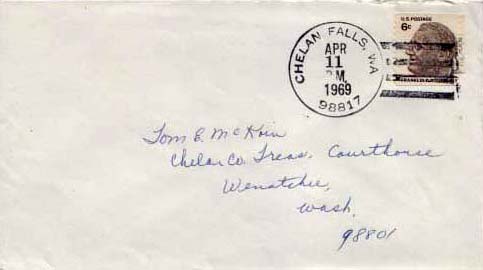 CHELAN FALLS, WA
APR
11
P.M.
1969
98817
U.S. POSTAGE
6c
Tom E. McKoin
Chelan Co. Treas, Courthouse
Wenatchee,
Wash.
98801